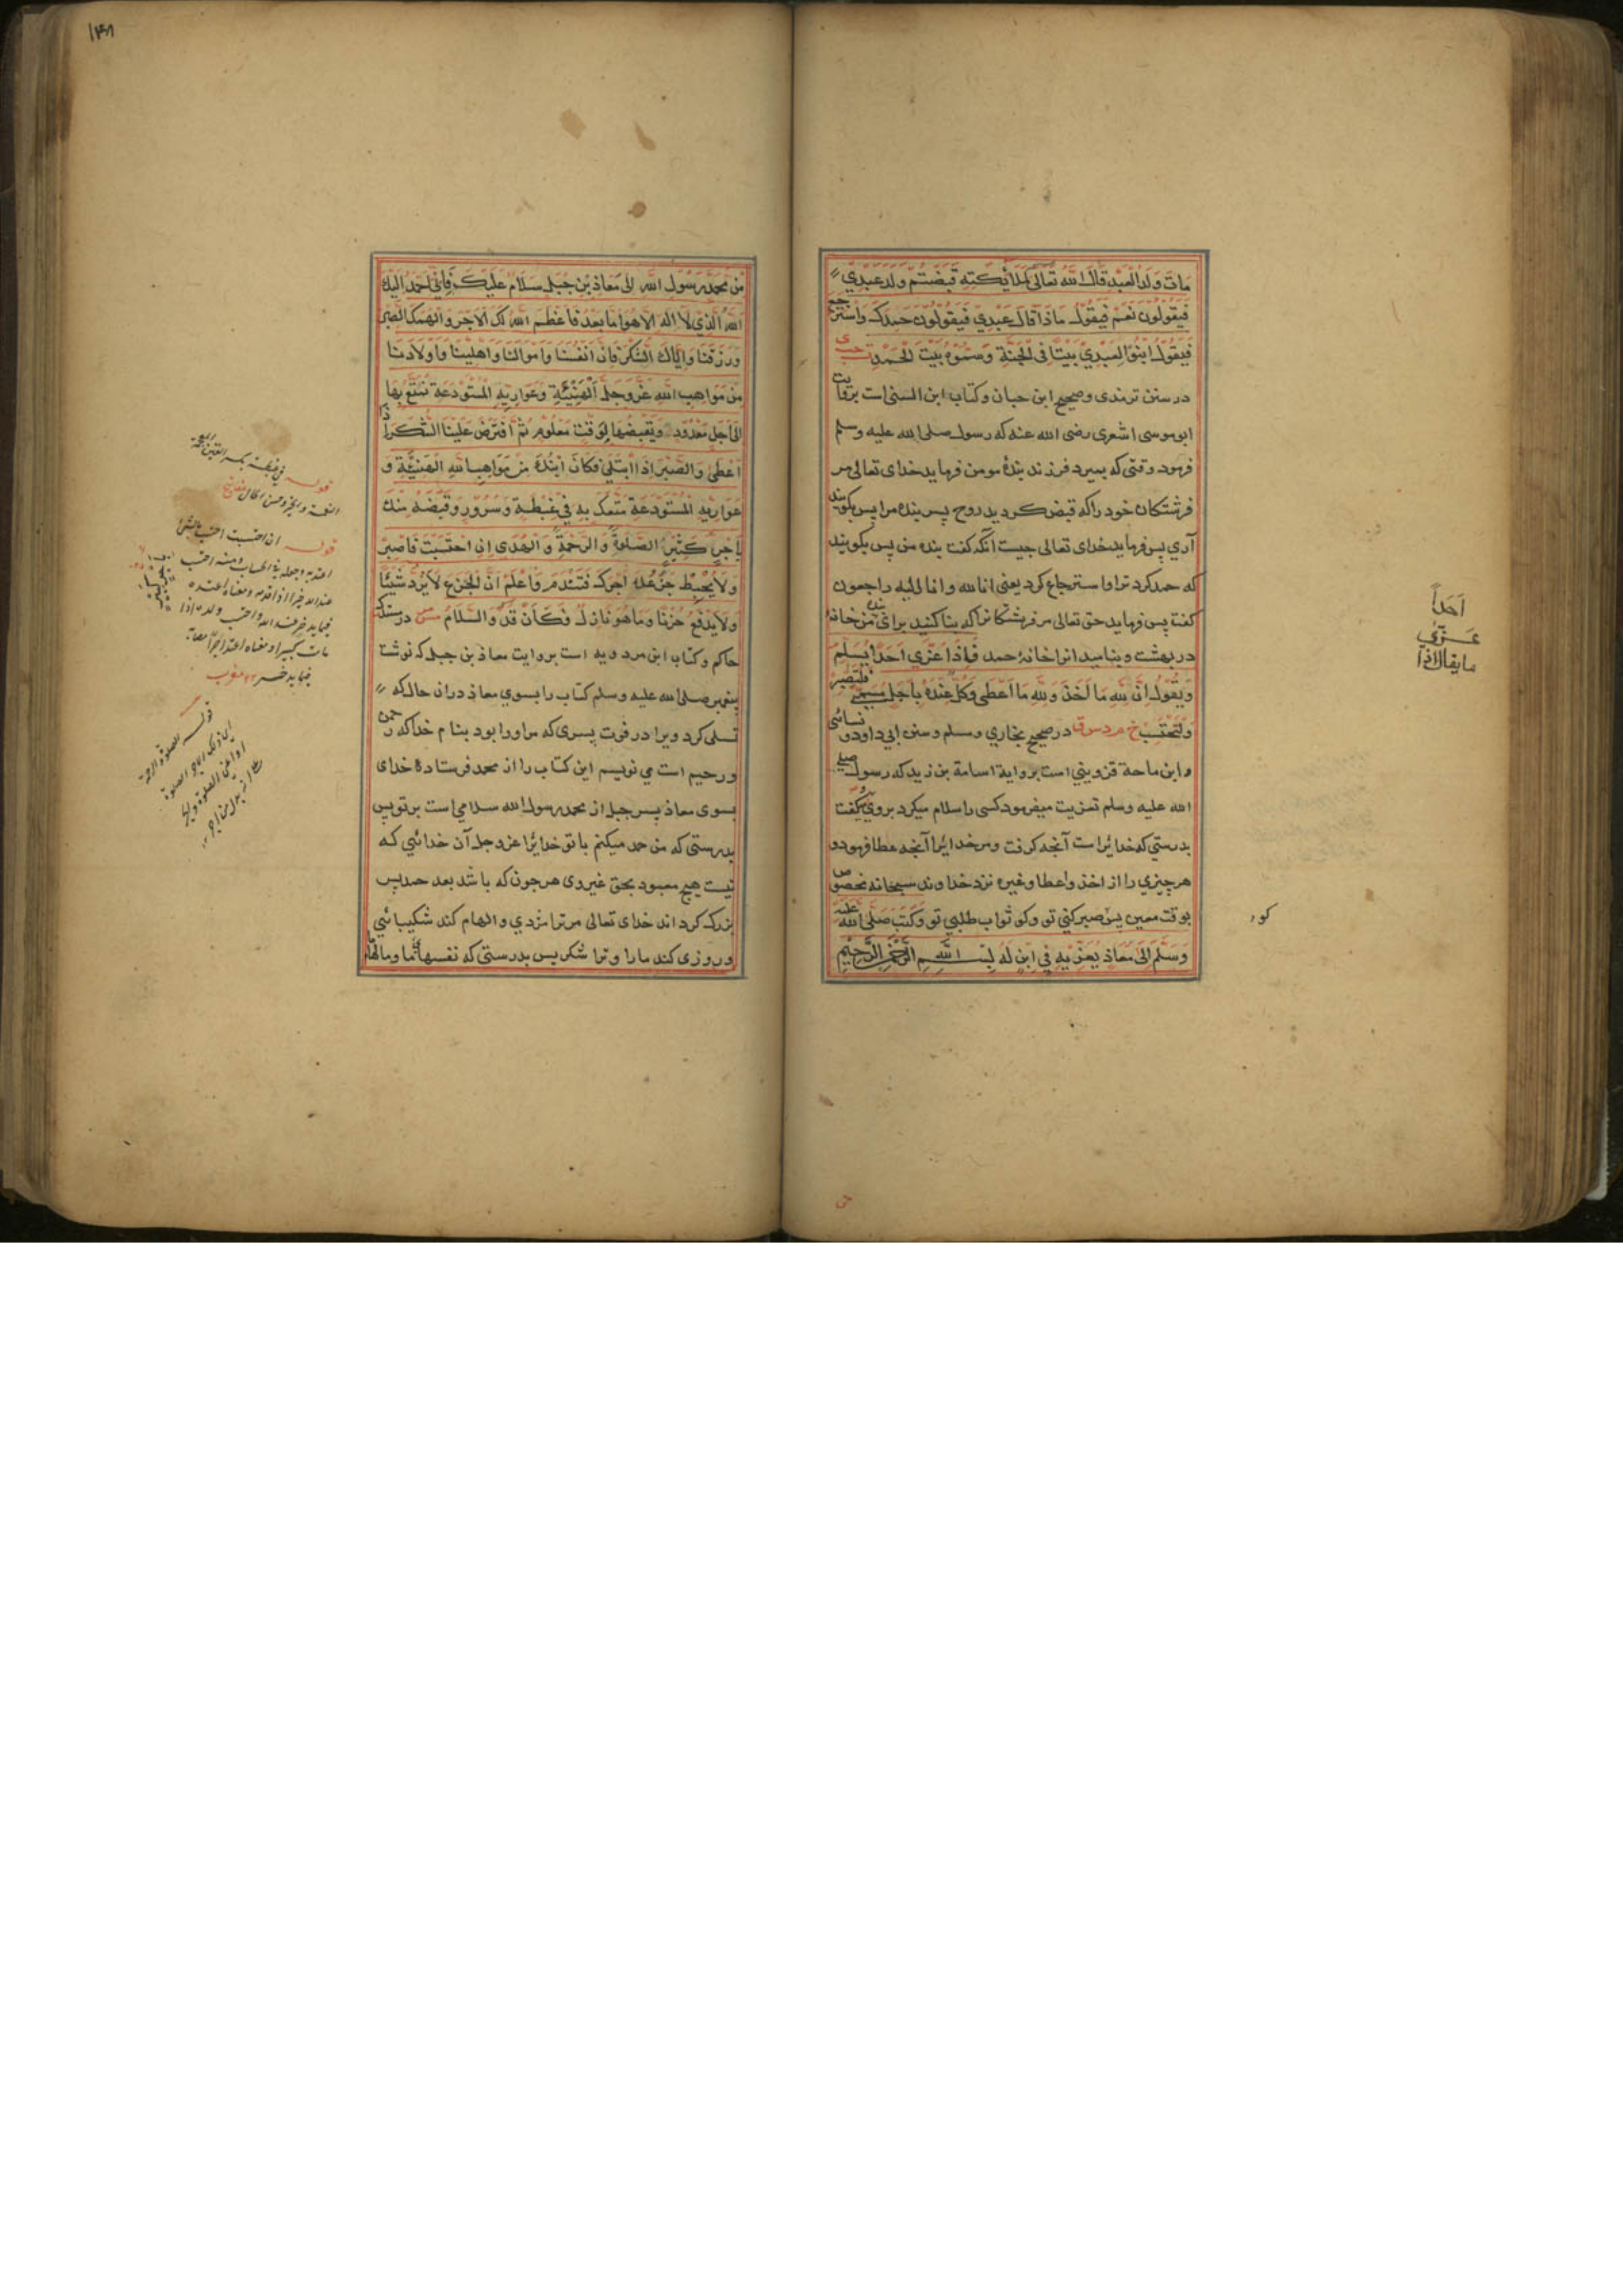 مَاتَ وَلَدُ الْعَبْدِ قَالَ اللّٰهُ تَعَالَى لِمَلَائِكَتِهِ قَبَضْتُمْ وَلَدَ عَبْدِيْ
فَيَقُولُونَ نَعَمْ فَيَقُوْلُ مَاذَا قَالَ عَبْدِيْ فَيَقُوْلُوْنَ حَمِدَكَ وَاسْتَرْجَعَ
فَيَقُوْلُ ابْنُوْا لِعَبْدِيْ بَيْتًا فِى الْجَنَّةِ وَسَمُّوْهُ بَيْتَ الْحَمْدِ ت حب ى
در سنن ترمذی و صحیح ابن حبان و کتاب ابن السنی است بروایت
ابو موسی اشعری رضی الله عنه که رسول صلی الله علیه وسلم
فرمود وقتی که بمیرد فرزند بندهٔ مومن فرماید خدای تعالی مر
فرشتکان خود را که قبض کردید روح پسر بنده مرا پس بکویند
آری پس فرماید خدای تعالی چیست آنکه کفت بنده من پس بکویند
که حمد کرد ترا و استرجاع کرد یعنی انا لله و انا الیه راجعون
کفت پس فرماید حق تعالی مر فرشتکانرا که بنا کنید برای بنده من خانهٔ
در بهشت و بنامید انرا خانهٔ حمد فَاِذَا عَزّٰى اَحَدًا يُسَلِّمُ
وَيَقُوْلُ اِنَّ لِلّٰهِ مَا اَخَذَ وَلِلّٰهِ مَا اَعْطٰى وَكُلٌّ عِنْدَهُ بِاَجَلٍ مُسَمًّى فَلْتَصْبِرْ
وَلْتَحْتَسِبْ خ م د س ق در صحیح بخاری و مسلم و سنن ابی داود و نسائی
و ابن ماجة قزوینی است بروایة اسامة بن زید که رسول صلی
الله علیه وسلم تعزیت میفرمود کسی را سلام میکرد بروی و میکفت
بدرستی که خدایراست آنچه کرفت و مر خدایرا آنچه عطا فرمود و
هر چیزی را از اخذ و اعطا و غیره نزد خداوند سبحانه مخصوص
بوقت معین پس صبر کنی تو و کو ثواب طلبی تو وَكَتَبَ صَلَّى اللهُ عَلَيْهِ
وَسَلَّمَ اِلٰى مُعَاذٍ يُعَزِّيْهِ فِي ابْنٍ لَهُ بِسْمِ اللّٰهِ الرَّحْمٰنِ الرَّحِيْمِ
ما يقال اذا
عَزّٰي
اَحَداً
کو
١٣٨
مِنْ مُحَمَّدٍ رَسُوْلِ اللهِ اِلٰى مُعَاذِ بْنِ جَبَلٍ سَلَامٌ عَلَيْكَ فَاِنِّيْ اَحْمَدُ اِلَيْكَ
اللهَ الَّذِي لَا اِلٰهَ اِلَّا هُوَ اَمَّا بَعْدُ فَاَعْظَمَ اللهُ لَكَ الْاَجْرَ وَاَلْهَمَكَ الصَّبْرَ
وَرَزَقَنَا وَاِيَّاكَ الشُّكْرَ فَاِنَّ اَنْفُسَنَا وَاَمْوَالَنَا وَاَهْلِيْنَا وَاَوْلَادَنَا
مِنْ مَوَاهِبِ اللهِ عَزَّ وَجَلَّ الْهَنِيْئَةِ وَعَوَارِيْهِ الْمُسْتَوْدَعَةِ نُمَتَّعُ بِهَا
اِلٰى اَجَلٍ مَعْدُوْدٍ وَيَقْبِضُهَا لِوَقْتٍ مَعْلُوْمٍ ثُمَّ افْتَرَضَ عَلَيْنَا الشُّكْرَ اِذَا
اَعْطٰى وَالصَّبْرَ اِذَا ابْتَلٰى فَكَانَ ابْنُكَ مِنْ مَوَاهِبِ اللهِ الْهَنِيْئَةِ وَ
عَوَارِيْهِ الْمُسْتَوْدَعَةِ مَتَّعَكَ بِهِ فِيْ غِبْطَةٍ وَسُرُوْرٍ وَقَبَضَهُ مِنْكَ
بِاَجْرٍ كَثِيْرٍ الصَّلٰوةُ وَالرَّحْمَةُ وَالْهُدٰى اِنِ احْتَسَبْتَ فَاصْبِرْ
وَلَا يُحْبِطْ جَزَعُكَ اَجْرَكَ فَتَنْدَمَ وَاعْلَمْ اَنَّ الْجَزَعَ لَا يَرُدُّ شَيْئًا
وَلَا يَدْفَعُ حُزْنًا وَمَا هُوَ نَازِلٌ فَكَاَنْ قَدْ وَالسَّلَامُ مس مر در مستدرک
حاکم و کتاب ابن مردویه است بروایت معاذ بن جبل که نوشت
پیغمبر صلی الله علیه وسلم کتاب را بسوی معاذ دران حال که
تسلی کرد ویرا در فوت پسری که مر اورا بود بنام خدا که رحمن
و رحیم است می نویسم این کتاب را از محمد فرستادهٔ خدای
بسوی معاذ پسر جبل از محمد رسول الله سلامی است بر تو پس
بدرستی که من حمد میکنم با تو خدایرا عز و جل آن خدائی که
نیست هیچ معبود بحق غیر وی هر چون که باشد بعد حمد پس
بزرک کرداند خدای تعالی مر ترا مزدی و الهام کند شکیبائی
و روزی کند مارا و ترا شکر پس بدرستی که نفسهای ما و مالهای
قوله
قوله ان احتسبت